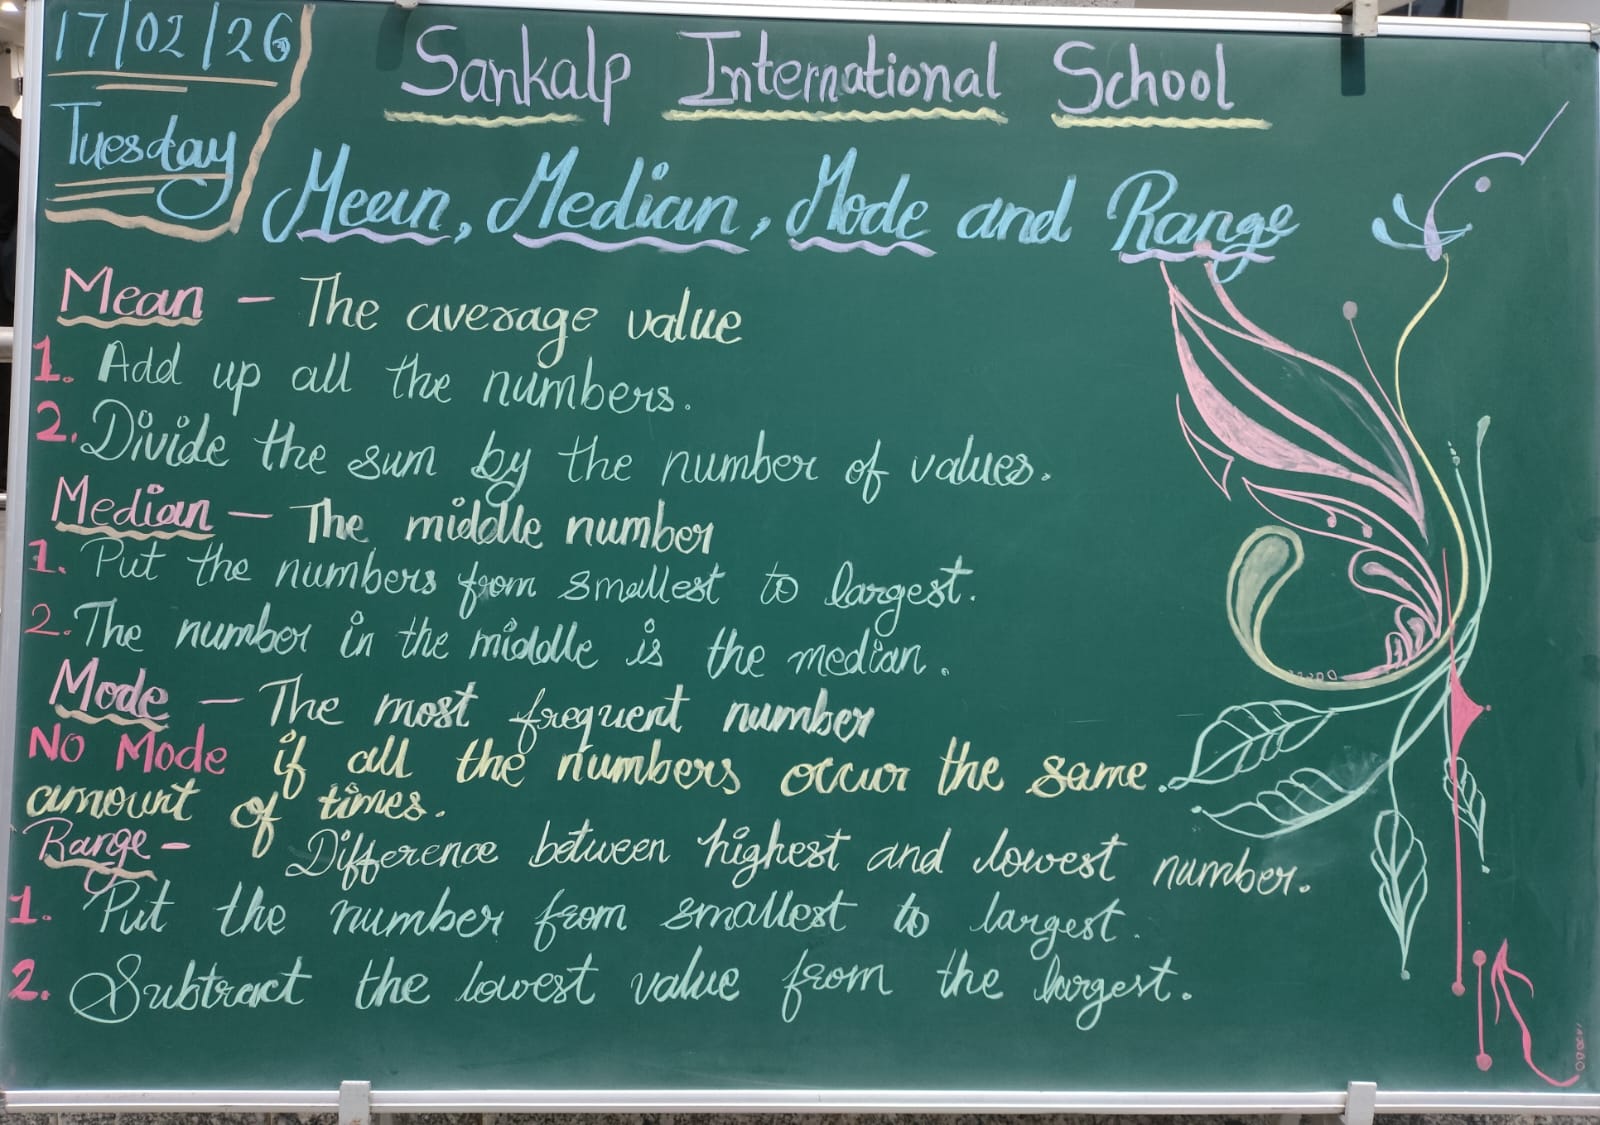 17/02/26
Tuesday
Sankalp International School
Mean, Median, Mode and Range
Mean - The average value
1. Add up all the numbers.
2. Divide the sum by the number of values.
Median - The middle number
1. Put the numbers from smallest to largest.
2. The number in the middle is the median.
Mode - The most frequent number
NO Mode if all the numbers occur the same.
amount of times.
Range - Difference between highest and lowest number.
1. Put the number from smallest to largest.
2. Subtract the lowest value from the largest.